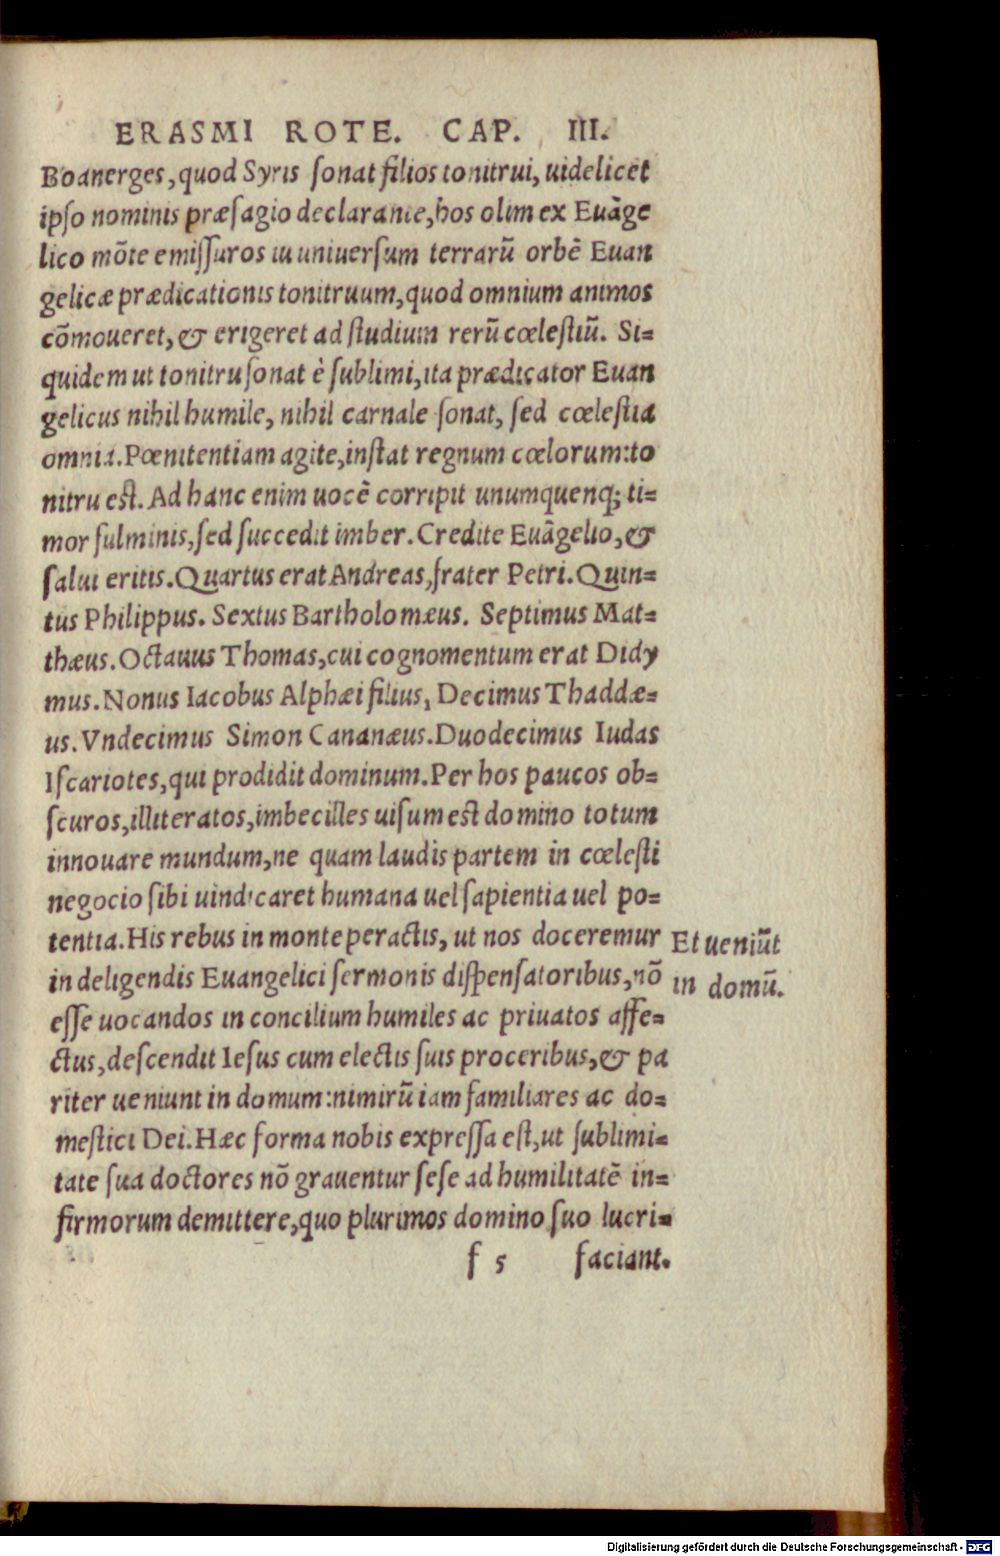 ERASMI ROTE. CAP. III.
Boanerges, quod Syris ſonat filios tonitrui, uidelicet
ipſo nominis præſagio declarante, hos olim ex Euãge
lico mõte emiſſuros in uniuerſum terrarũ orbẽ Euan
gelicæ prædicationis tonitruum, quod omnium animos
cõmoueret, & erigeret ad ſtudium rerũ cœleſtiũ. Si=
quidem ut tonitru ſonat è ſublimi, ita prædicator Euan
gelicus nihil humile, nihil carnale ſonat, ſed cœleſtia
omnia. Pœnitentiam agite, inſtat regnum cœlorum: to
nitru eſt. Ad hanc enim uocẽ corripit unumquenq; ti=
mor fulminis, ſed ſuccedit imber. Credite Euãgelio, &
ſalui eritis. Quartus erat Andreas, frater Petri. Quin=
tus Philippus. Sextus Bartholomæus. Septimus Mat=
thæus. Octauus Thomas, cui cognomentum erat Didy
mus. Nonus Iacobus Alphæi filius, Decimus Thaddæ=
us. Vndecimus Simon Cananæus. Duodecimus Iudas
Iſcariotes, qui prodidit dominum. Per hos paucos ob=
ſcuros, illiteratos, imbecilles uiſum eſt domino totum
innouare mundum, ne quam laudis partem in cœleſti
negocio ſibi uindicaret humana uel ſapientia uel po=
tentia. His rebus in monte peractis, ut nos doceremur
Et ueniũt
in deligendis Euangelici ſermonis diſpenſatoribus, nõ
in domũ.
eſſe uocandos in concilium humiles ac priuatos affe=
ctus, deſcendit Ieſus cum electis ſuis proceribus, & pa
riter ueniunt in domum: nimirũ iam familiares ac do=
meſtici Dei. Hæc forma nobis expreſſa eſt, ut ſublimi=
tate ſua doctores nõ grauentur ſeſe ad humilitatẽ in=
firmorum demittere, quo plurimos domino ſuo lucri=
f 5 faciant.
Digitalisierung gefördert durch die Deutsche Forschungsgemeinschaft - DFG